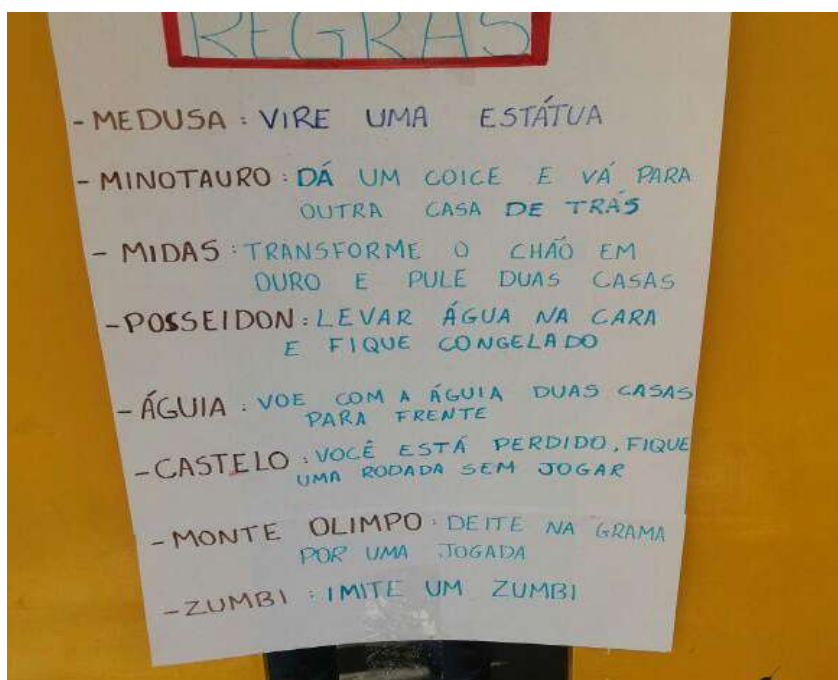 REGRAS
- MEDUSA : VIRE UMA ESTÁTUA
- MINOTAURO : DÁ UM COICE E VÁ PARA
OUTRA CASA DE TRÁS
- MIDAS : TRANSFORME O CHÃO EM
OURO E PULE DUAS CASAS
- POSSEIDON : LEVAR ÁGUA NA CARA
E FIQUE CONGELADO
- ÁGUIA : VOE COM A ÁGUIA DUAS CASAS
PARA FRENTE
- CASTELO : VOCÊ ESTÁ PERDIDO, FIQUE
UMA RODADA SEM JOGAR
- MONTE OLIMPO : DEITE NA GRAMA
POR UMA JOGADA
- ZUMBI : IMITE UM ZUMBI